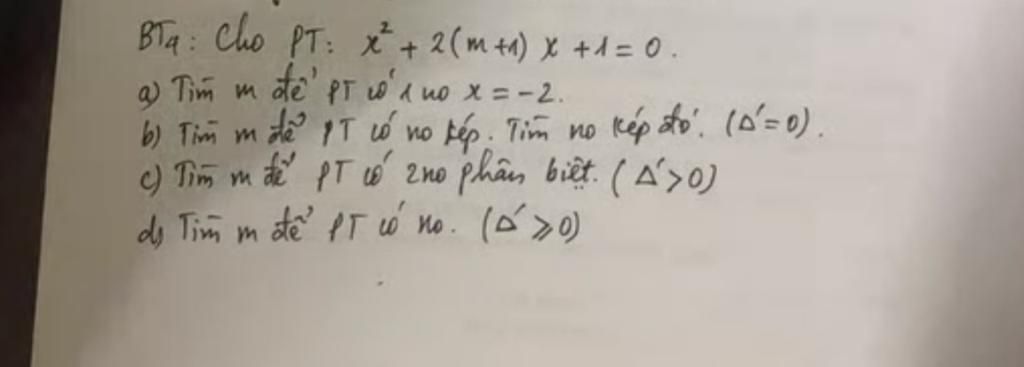 BT4: Cho PT: x² + 2(m+1) x + 1 = 0.
a) Tìm m để PT có 1 no x = -2.
b) Tìm m để PT có no kép. Tìm no kép đó. (Δ' = 0).
c) Tìm m để PT có 2 no phân biệt. (Δ' > 0)
d) Tìm m để PT có no. (Δ' ⩾ 0)